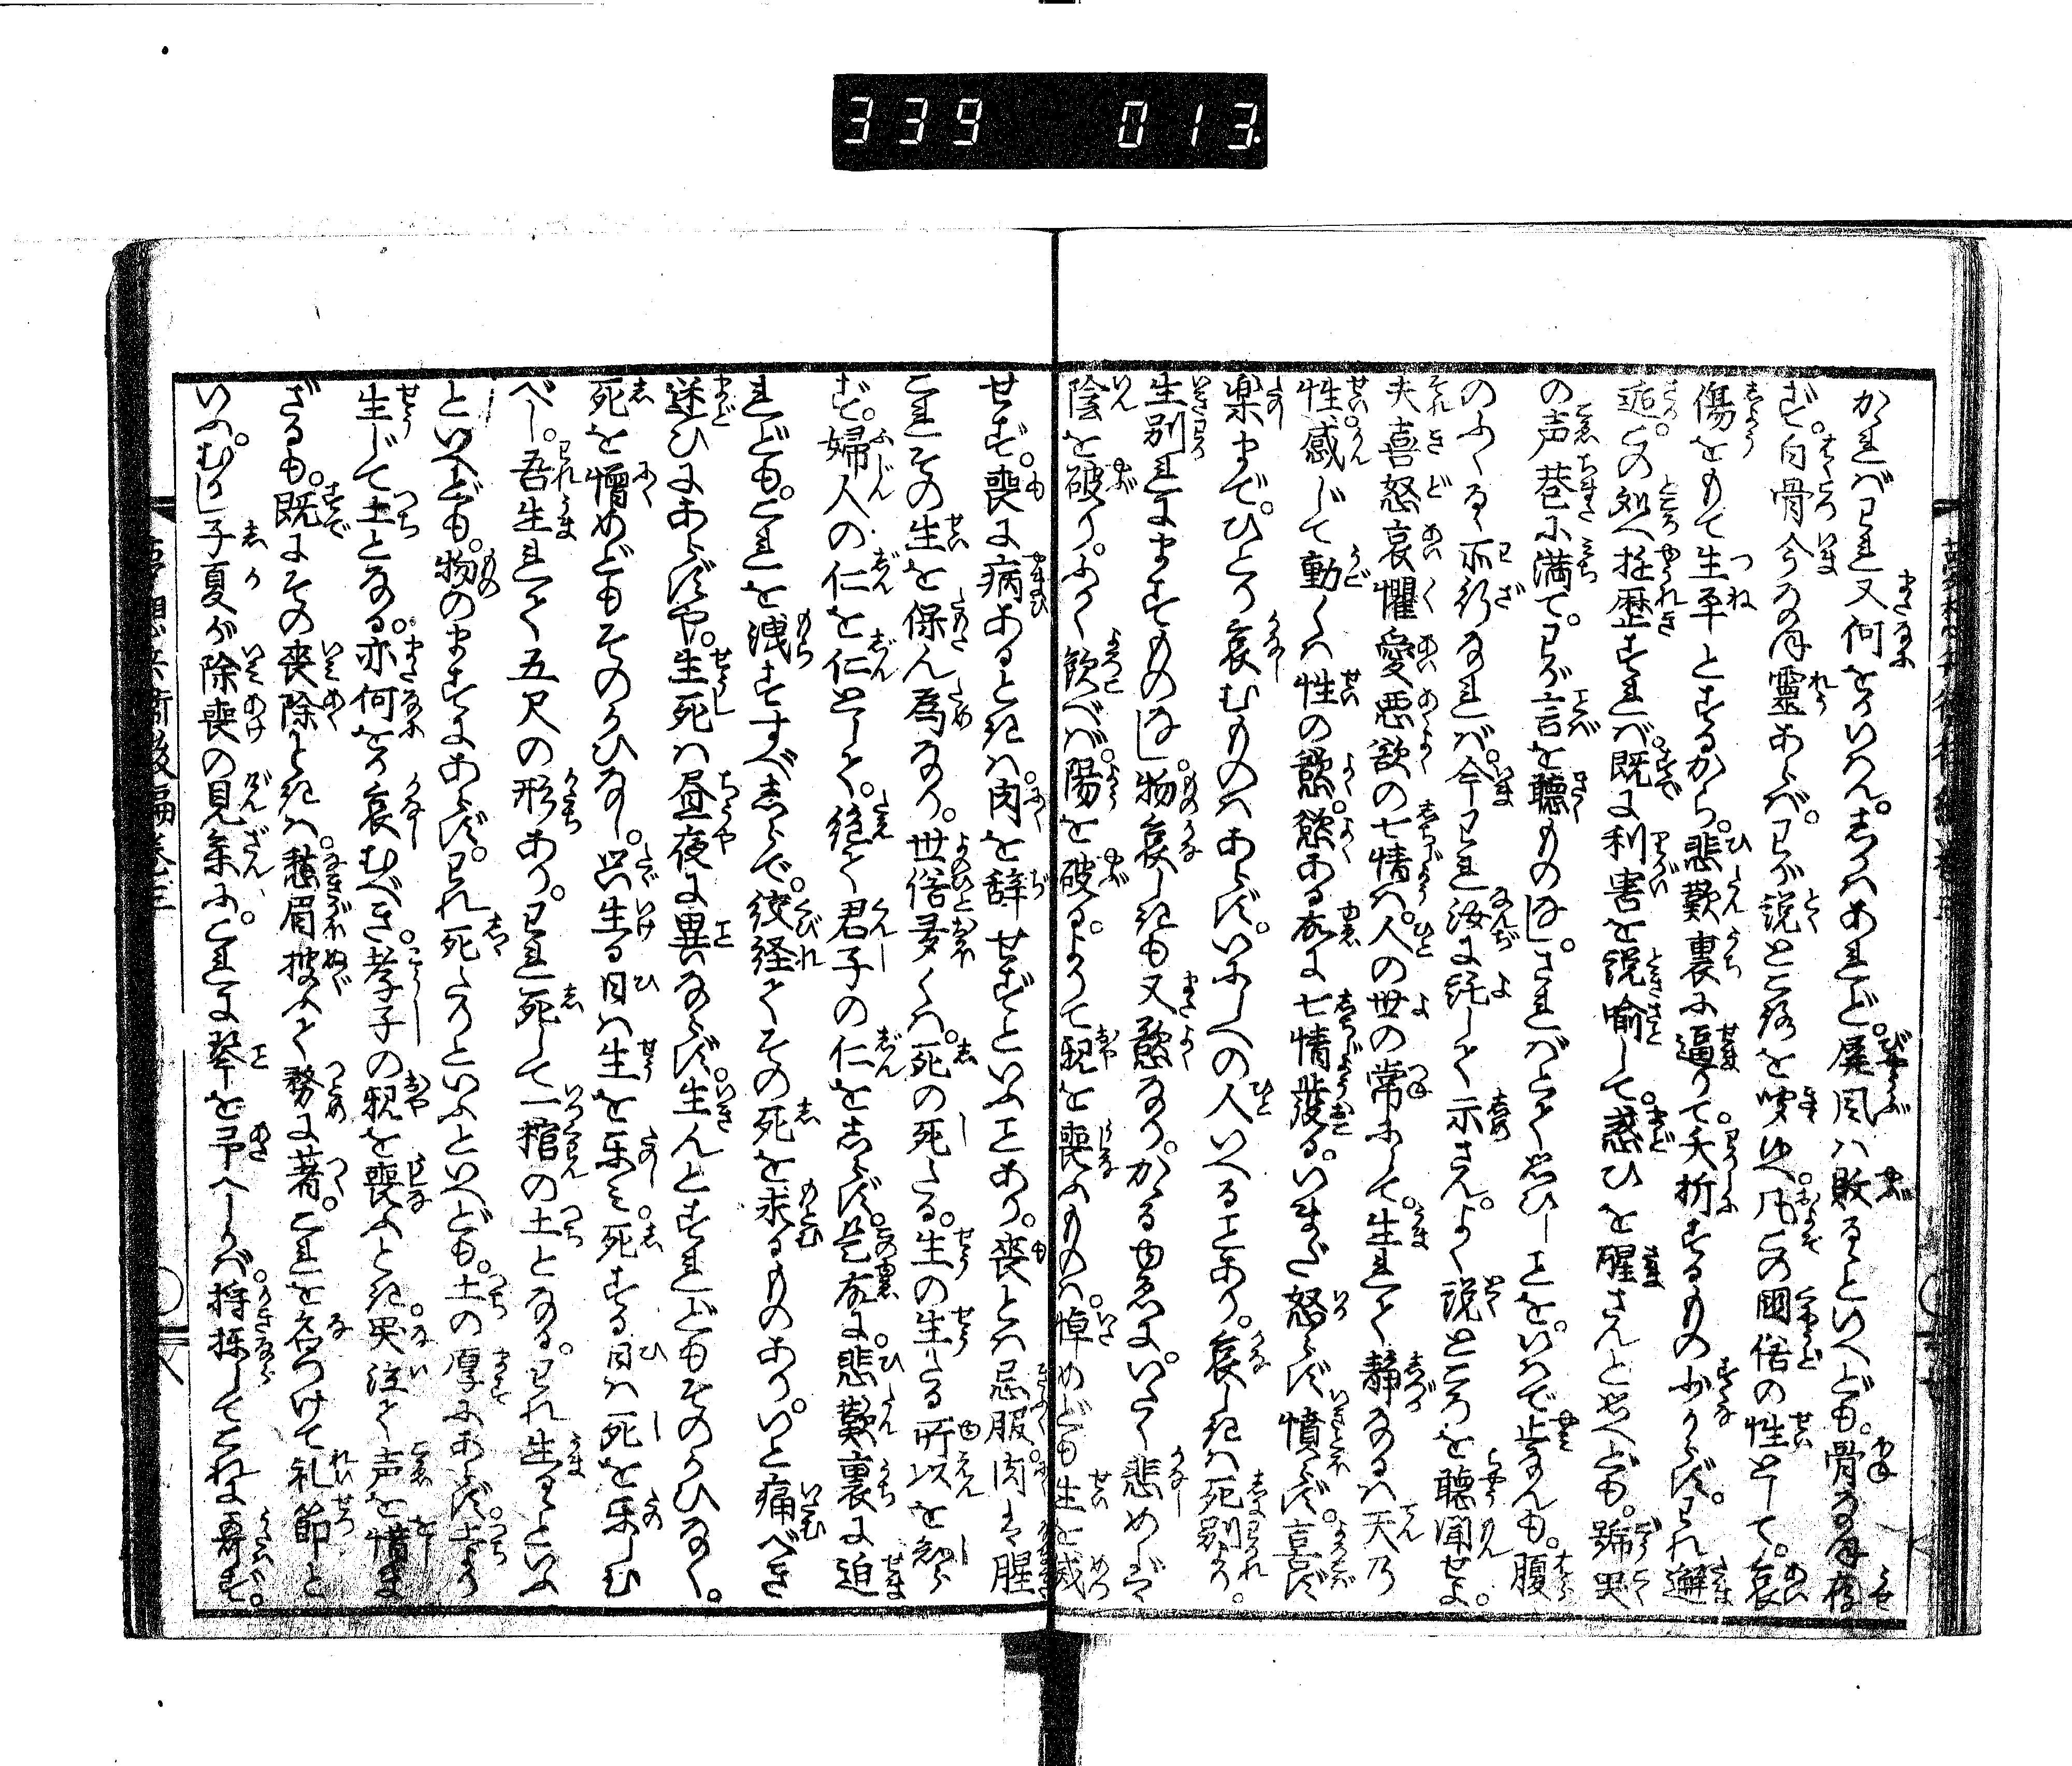 339 013
かゝればわれ又何をかいはん。しかはあれど。屏風は敗るゝといへども。骨なほ存
ず。白骨今なほ霊あらば。わが説ところを听ゆへ。凡この国俗の性として。哀
傷をもて生平とするから。悲歎裏に逼りて。夭折するもの少からず。われ邂
逅。この処へ抂歴すれば。既に利害を説喩して。惑ひを醒さんとせへども。号哭
の声巷に満て。わが言を聴ものなし。さればとて思ひしことを。いはで止なんも。腹
のふくるゝ所行なれば。今われ汝に託して示さん。よく説ところを聴聞せよ。
夫喜怒哀懼愛悪欲の七情は。人の世の常にして。生れて静なるは天乃
性。感じて動くは性の慾。慾ある故に七情発る。いまだ怒らず憤らず。喜ばず
楽まで。ひとり哀むものはあらず。いにしへの人いへることあり。哀しきは死別より。
生別れにますものなし。物哀しきも又慾なり。かゝるゆゑに。いたく悲めば
陰を破り。ふかく歓べば。陽を破る。よりて親を喪ふものは。悼めども生を滅
せず。喪に病あるときは。肉を辞せずといふことあり。喪とは忌服。肉は腥
これその生を保ん為なり。世俗多くは。死の死たる。生の生たる所以を知ら
ず。婦人の仁を仁として。絶て君子の仁をしらず。是故に。悲歎裏に迫
れども。これを洩すすべしらで。縊経てその死を求るものあり。いと痛べき
迷ひにあらずや。生死は昼夜に異ならず。生んとすれどもそのかひなく。
死を憎めどもそのかひなし。只生る日は生を楽み。死する日は死を楽しむ
べし。吾生れて五尺の形あり。われ死して一棺の土となる。われ生るゝといふ
といへども。物のますにあらず。われ死たりといふといへども。土の厚にあらず。土より
生じて土となる。亦何をか哀むべき。孝子の親を喪ふとき。哭泣て声を惜ま
ざるも。既にその喪除ときは。愁眉披ふて務に著。これを名つけて礼節と
いふ。むかし子夏が除喪の見参に。これに琴を予へしかば。捋揉してこれに寿ず。
夢想兵衛後編巻三